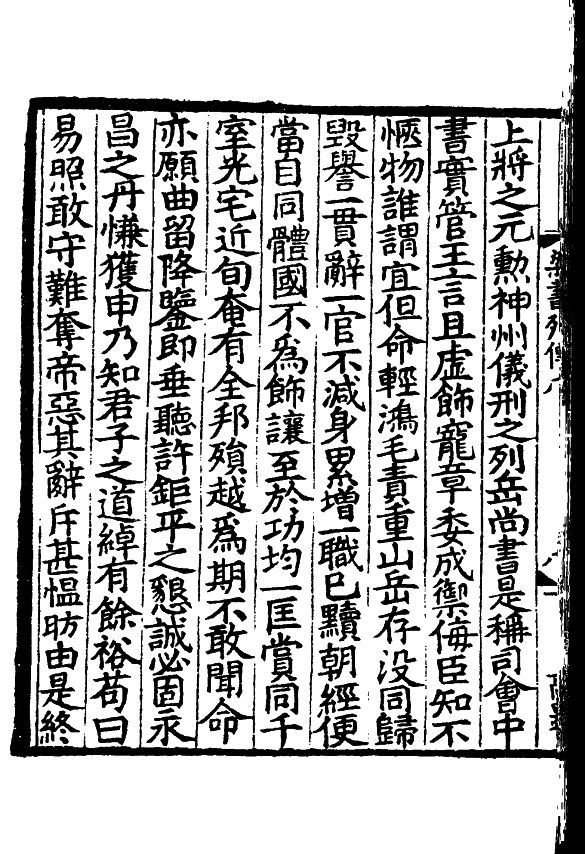 上將之元勲神州儀刑之列岳尚書是稱司會中
書實管王言且虚飾寵章委成禦侮臣知不
愜物誰謂宜但命輕鴻毛責重山岳存没同歸
毀譽一貫辭一官不減身累增一職已黷朝經便
當自同體國不爲飾讓至於功均一匡賞同千
室光宅近甸奄有全邦殞越爲期不敢聞命
亦願曲留降鑒即垂聽許鉅平之懇誠必固永
昌之丹慊獲申乃知君子之道綽有餘裕苟曰
易照敢守難奪帝惡其辭斥甚愠昉由是終
梁書列傳八